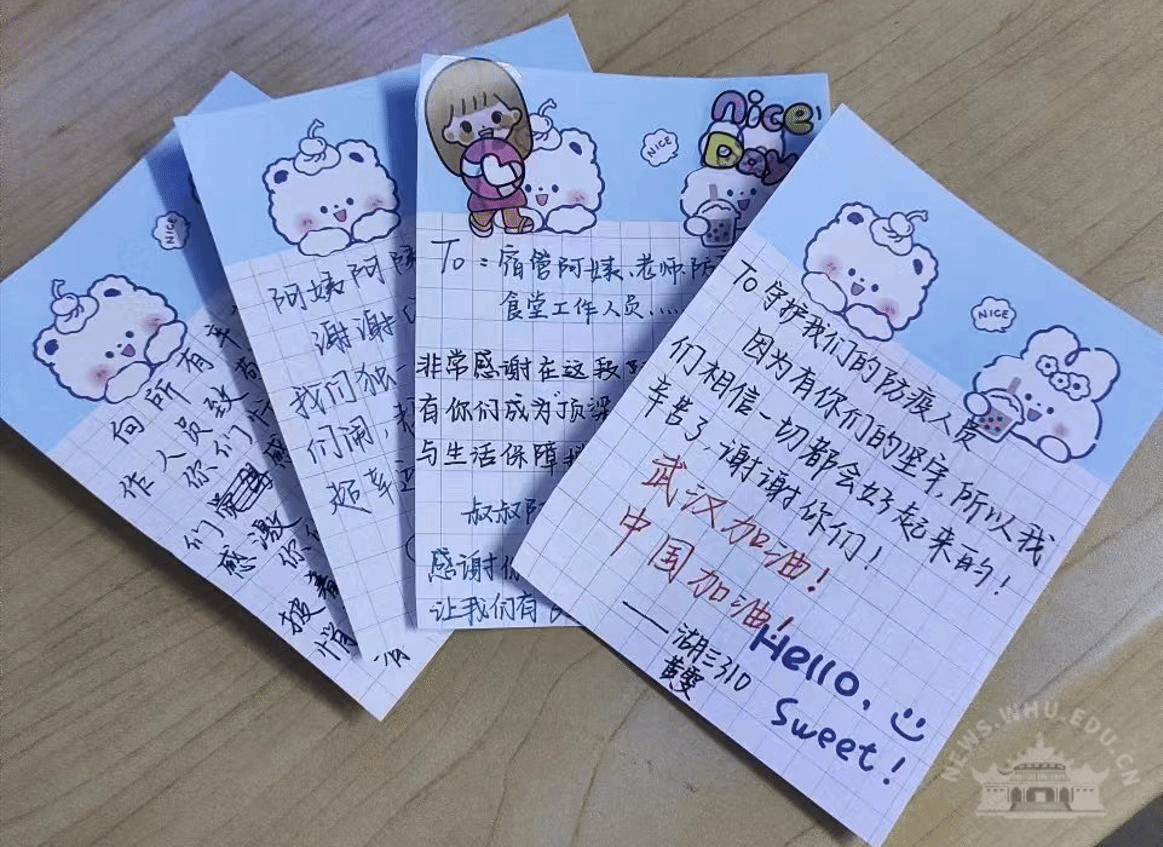 NICE
向所有辛
作人员致
你们
们
感激你
披着
悄
阿姨阿
谢谢
我们独一
们闹，
超幸运
nice
Day
NICE
To：宿管阿姨、老师、防
食堂工作人员……
非常感谢在这段
有你们成为"顶梁
与生活保障
叔叔阿
感谢你
让我们有
NICE
To 守护我们的防疫人员
因为有你们的坚守，所以我
们相信一切都会好起来的！
辛苦了，谢谢你们！
武汉加油！
中国加油！
——湖三310
黄雯
Hello,
Sweet!
NEWS.WHU.EDU.CN